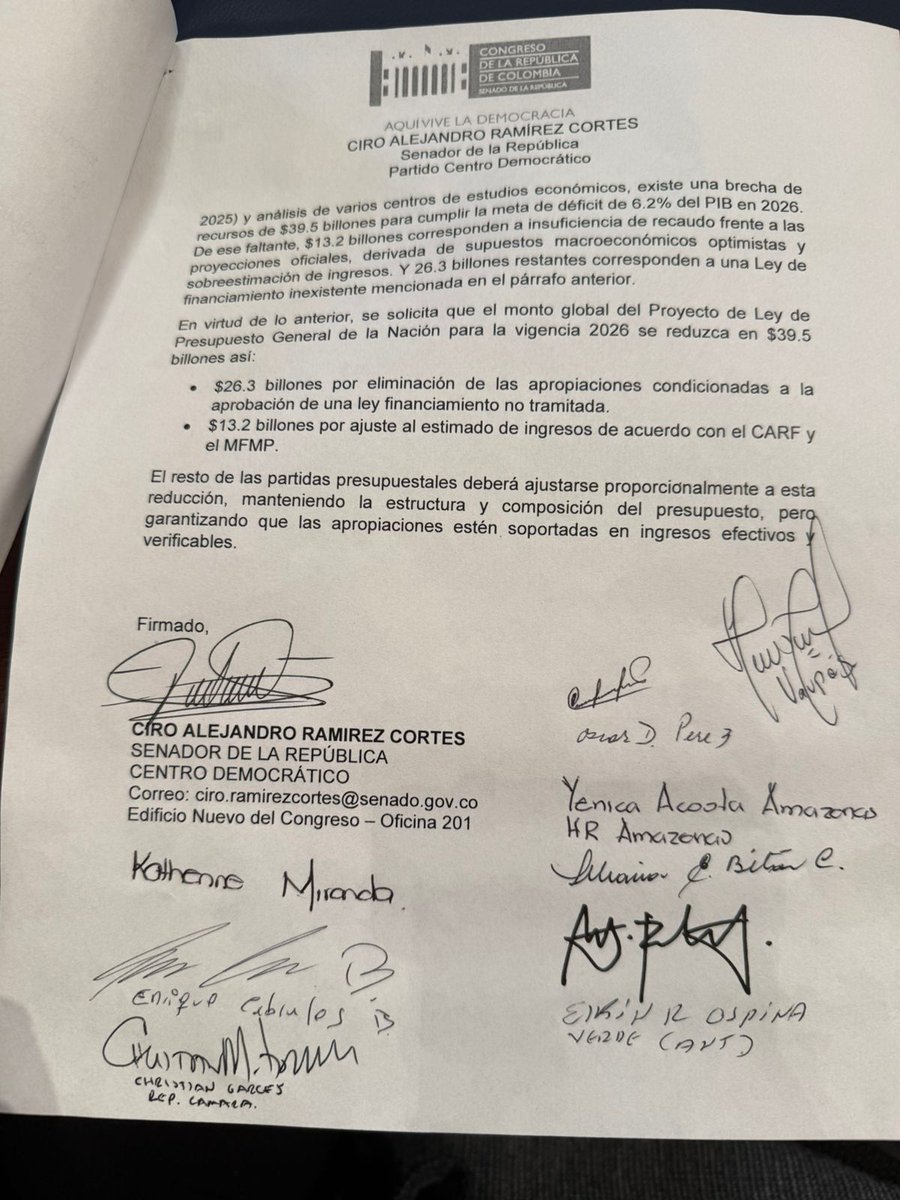 CONGRESO
DE LA REPÚBLICA
DE COLOMBIA
SENADO DE LA REPÚBLICA
AQUÍ VIVE LA DEMOCRACIA
CIRO ALEJANDRO RAMÍREZ CORTES
Senador de la República
Partido Centro Democrático
2025) y análisis de varios centros de estudios económicos, existe una brecha de
recursos de $39.5 billones para cumplir la meta de déficit de 6.2% del PIB en 2026.
De ese faltante, $13.2 billones corresponden a insuficiencia de recaudo frente a las
proyecciones oficiales, derivada de supuestos macroeconómicos optimistas y
sobreestimación de ingresos. Y 26.3 billones restantes corresponden a una Ley de
financiamiento inexistente mencionada en el párrafo anterior.
En virtud de lo anterior, se solicita que el monto global del Proyecto de Ley de
Presupuesto General de la Nación para la vigencia 2026 se reduzca en $39.5
billones así:
• $26.3 billones por eliminación de las apropiaciones condicionadas a la
aprobación de una ley financiamiento no tramitada.
• $13.2 billones por ajuste al estimado de ingresos de acuerdo con el CARF y
el MFMP.
El resto de las partidas presupuestales deberá ajustarse proporcionalmente a esta
reducción, manteniendo la estructura y composición del presupuesto, pero
garantizando que las apropiaciones estén soportadas en ingresos efectivos y
verificables.
Firmado,
CIRO ALEJANDRO RAMIREZ CORTES
SENADOR DE LA REPÚBLICA
CENTRO DEMOCRÁTICO
Correo: ciro.ramirezcortes@senado.gov.co
Edificio Nuevo del Congreso – Oficina 201
Vaupés
Oscar D. Perez
Yenica Acosta Amazonas
HR Amazonas
Katherine Miranda.
Bitar C.
Enrique Cabrales B.
CHRISTIAN GARCES
REP. CAMARA.
ELKIN R OSPINA
VERDE (ANT)